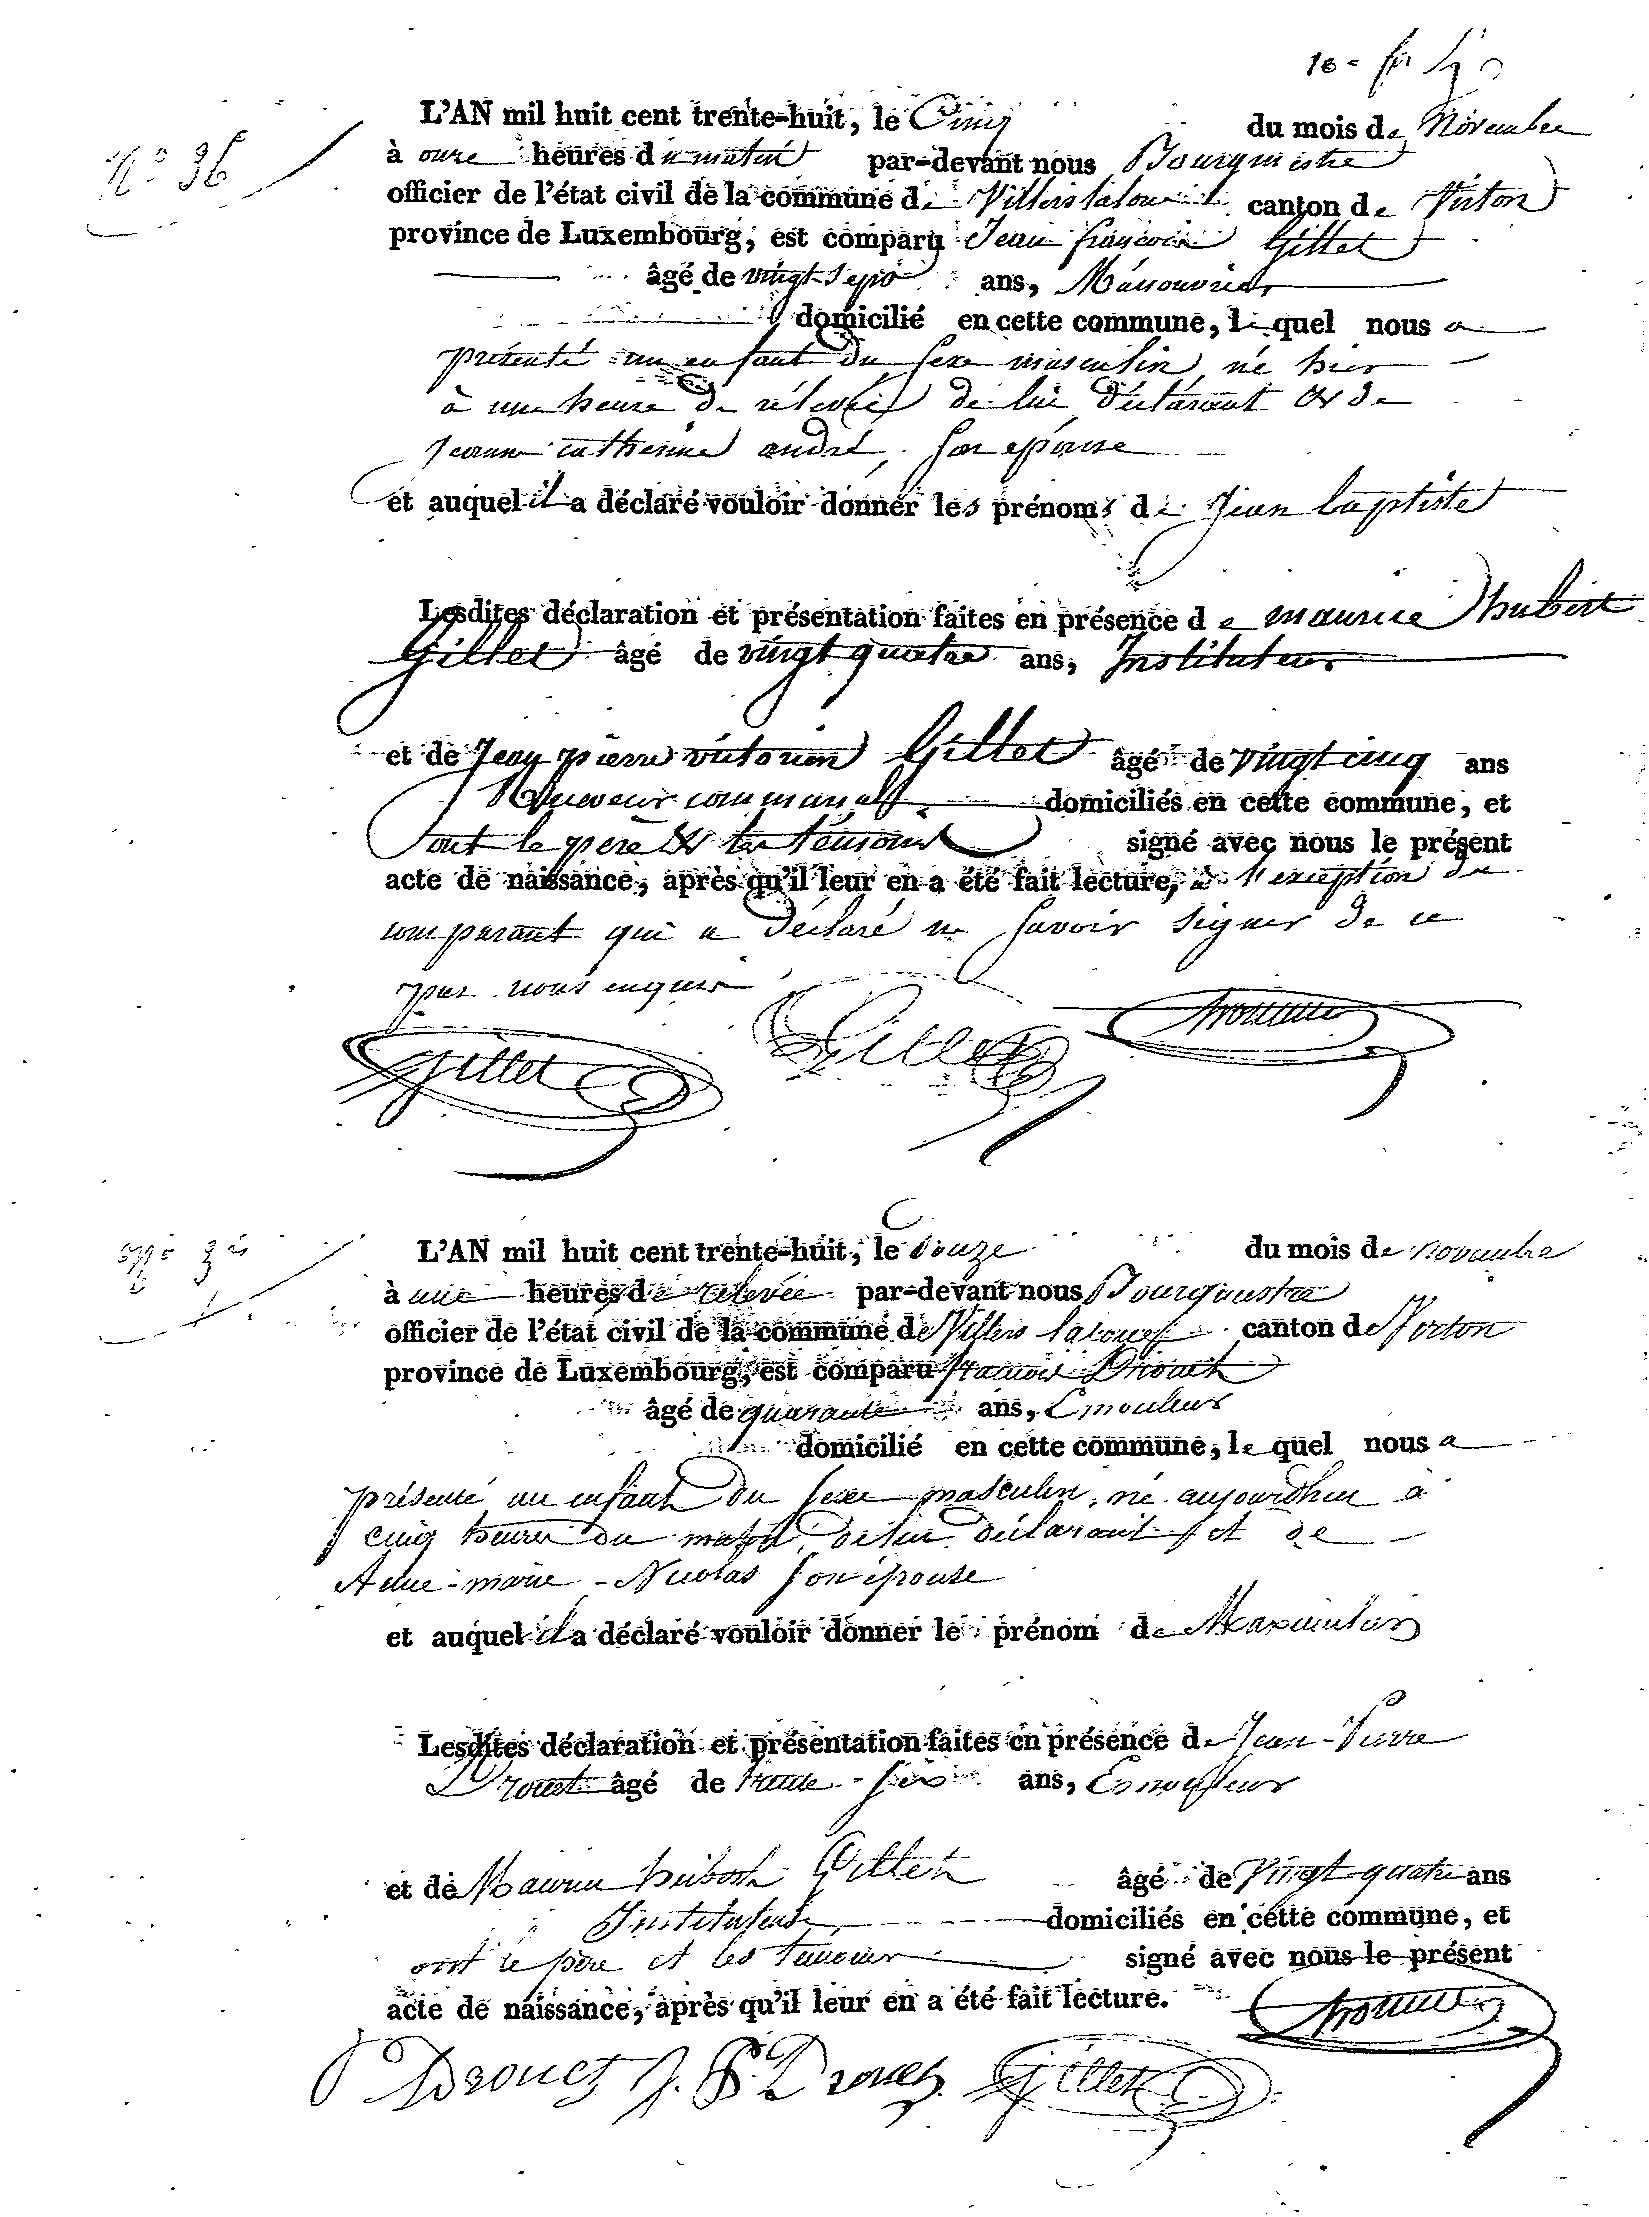 N.o 36
L'AN mil huit cent trente-huit, le Cinq du mois de Novembre
à onze heures du matin par-devant nous Bourgmestre
officier de l'état civil de la commune de Villers laloue canton de Virton
province de Luxembourg, est comparu Jean françois Gillet
âgé de vingt sept ans, Manouvrier
domicilié en cette commune, lequel nous a
présenté un enfant du sexe masculin, né hier
à une heure de rélevée de lui déclarant et de
jeanne catherine andré, son épouse
et auquel il a déclaré vouloir donner les prénoms de Jean baptiste
Lesdites déclaration et présentation faites en présence de maurice hubert
Gillet âgé de vingt quatre ans, Instituteur
et de Jean pierre victorien Gillet âgé de vingt cinq ans
Receveur communal domiciliés en cette commune, et
ont le père & les témoins signé avec nous le présent
acte de naissance, après qu'il leur en a été fait lecture, à l'exception du
comparant qui a déclaré ne savoir signer de ce
par nous enquis
Gillet Gillet
L'AN mil huit cent trente-huit, le Douze du mois de novembre
à une heures de relevée par-devant nous Bourgmestre
officier de l'état civil de la commune de Villers laloue canton de Virton
province de Luxembourg, est comparu francois Drouet
âgé de quarante ans, Emouleur
domicilié en cette commune, lequel nous a
présenté un enfant du sexe masculin, né aujourdhui à
cinq heures du matin, de lui déclarant et de
Anne-marie-Nicolas son épouse
et auquel il a déclaré vouloir donner le prénom de Maximilien
Lesdites déclaration et présentation faites en présence de Jean-Pierre
Drouet âgé de trente-six ans, Emouleur
et de Maurice hubert Gillet âgé de Vingt quatre ans
Instituteur domiciliés en cette commune, et
ont le père et les temoins signé avec nous le présent
acte de naissance, après qu'il leur en a été fait lecture.
Drouet J. P. Drouet Gillet